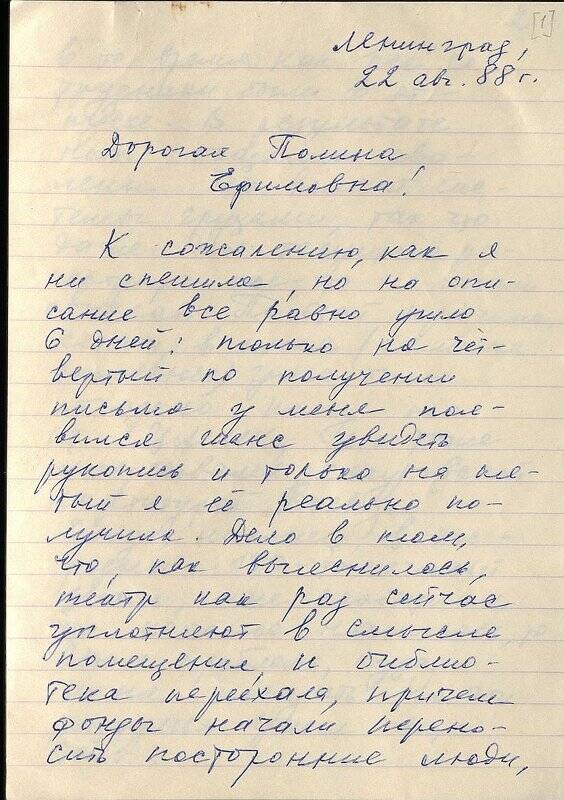 [1]
Ленинград,
22 авг. 88 г.
Дорогая Полина
Ефимовна!
К сожалению, как я
ни спешила, но на опи-
сание все равно ушло
6 дней: только на чет-
вертый по получении
письма у меня поя-
вился шанс увидеть
рукопись и только на пя-
тый я её реально по-
лучила. Дело в том,
что, как выяснилось,
театр как раз сейчас
уплотняют в смысле
помещения, и библио-
тека переехала, причем
фонды начали перено-
сить посторонние люди,